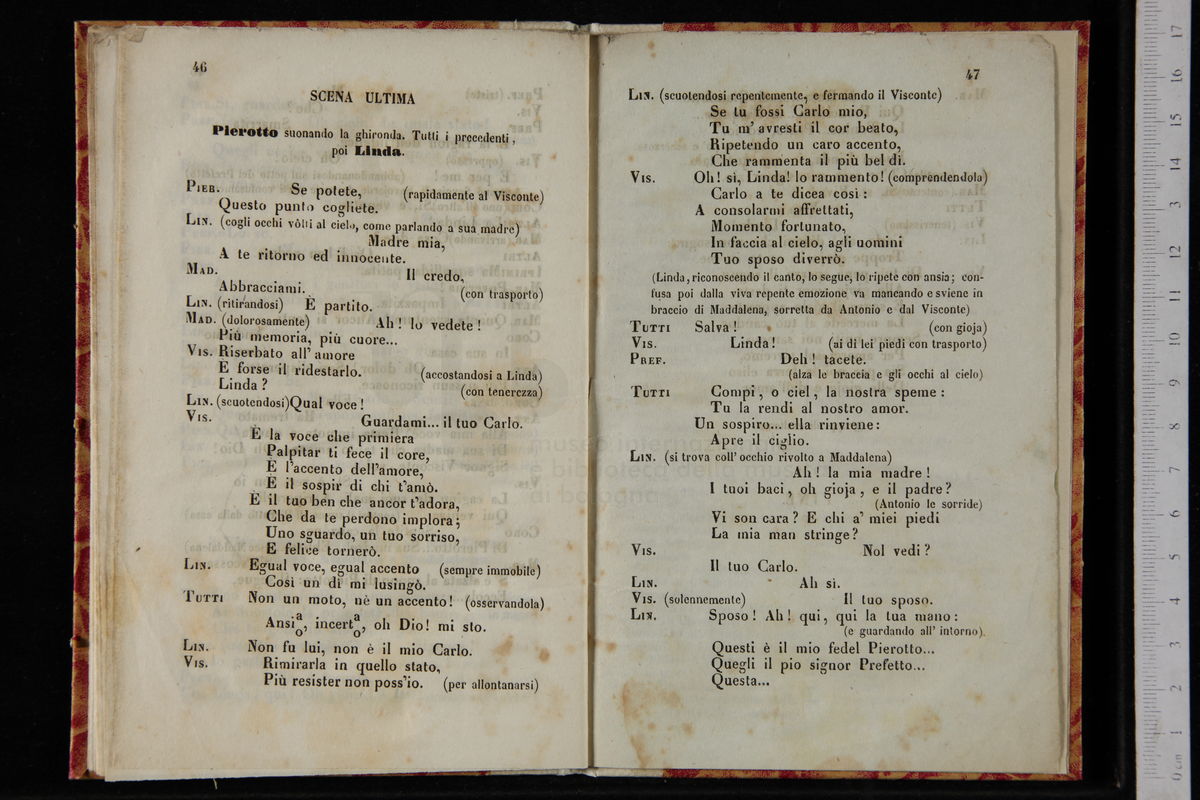 46
SCENA ULTIMA
Pierotto suonando la ghironda. Tutti i precedenti,
poi Linda.
PIER. Se potete, (rapidamente al Visconte)
Questo punto cogliete.
LIN. (cogli occhi vôlti al cielo, come parlando a sua madre)
Madre mia,
A te ritorno ed innocente.
MAD. Il credo.
Abbracciami. (con trasporto)
LIN. (ritirandosi) È partito.
MAD. (dolorosamente) Ah! lo vedete!
Più memoria, più cuore...
VIS. Riserbato all' amore
È forse il ridestarlo. (accostandosi a Linda)
Linda? (con tenerezza)
LIN. (scuotendosi) Qual voce!
VIS. Guardami... il tuo Carlo.
È la voce che primiera
Palpitar ti fece il core,
È l'accento dell'amore,
È il sospir di chi t'amò.
È il tuo ben che ancor t'adora,
Che da te perdono implora;
Uno sguardo, un tuo sorriso,
E felice tornerò.
LIN. Egual voce, egual accento (sempre immobile)
Così un dì mi lusingò.
TUTTI Non un moto, nè un accento! (osservandola)
Ansi a/o, incert a/o, oh Dio! mi sto.
LIN. Non fu lui, non è il mio Carlo.
VIS. Rimirarla in quello stato,
Più resister non poss'io. (per allontanarsi)
47
LIN. (scuotendosi repentemente, e fermando il Visconte)
Se tu fossi Carlo mio,
Tu m' avresti il cor beato,
Ripetendo un caro accento,
Che rammenta il più bel dì.
VIS. Oh! sì, Linda! lo rammento! (comprendendola)
Carlo a te dicea così:
A consolarmi affrettati,
Momento fortunato,
In faccia al cielo, agli uomini
Tuo sposo diverrò.
(Linda, riconoscendo il canto, lo segue, lo ripete con ansia; con-
fusa poi dalla viva repente emozione va mancando e sviene in
braccio di Maddalena, sorretta da Antonio e dal Visconte)
TUTTI Salva! (con gioja)
VIS. Linda! (ai di lei piedi con trasporto)
PREF. Deh! tacete.
(alza le braccia e gli occhi al cielo)
TUTTI Compi, o ciel, la nostra speme:
Tu la rendi al nostro amor.
Un sospiro... ella rinviene:
Apre il ciglio.
LIN. (si trova coll' occhio rivolto a Maddalena)
Ah! la mia madre!
I tuoi baci, oh gioja, e il padre?
(Antonio le sorride)
Vi son cara? E chi a' miei piedi
La mia man stringe?
VIS. Nol vedi?
Il tuo Carlo.
LIN. Ah sì.
VIS. (solennemente) Il tuo sposo.
LIN. Sposo! Ah! qui, qui la tua mano:
(e guardando all' intorno).
Questi è il mio fedel Pierotto...
Quegli il pio signor Prefetto...
Questa...